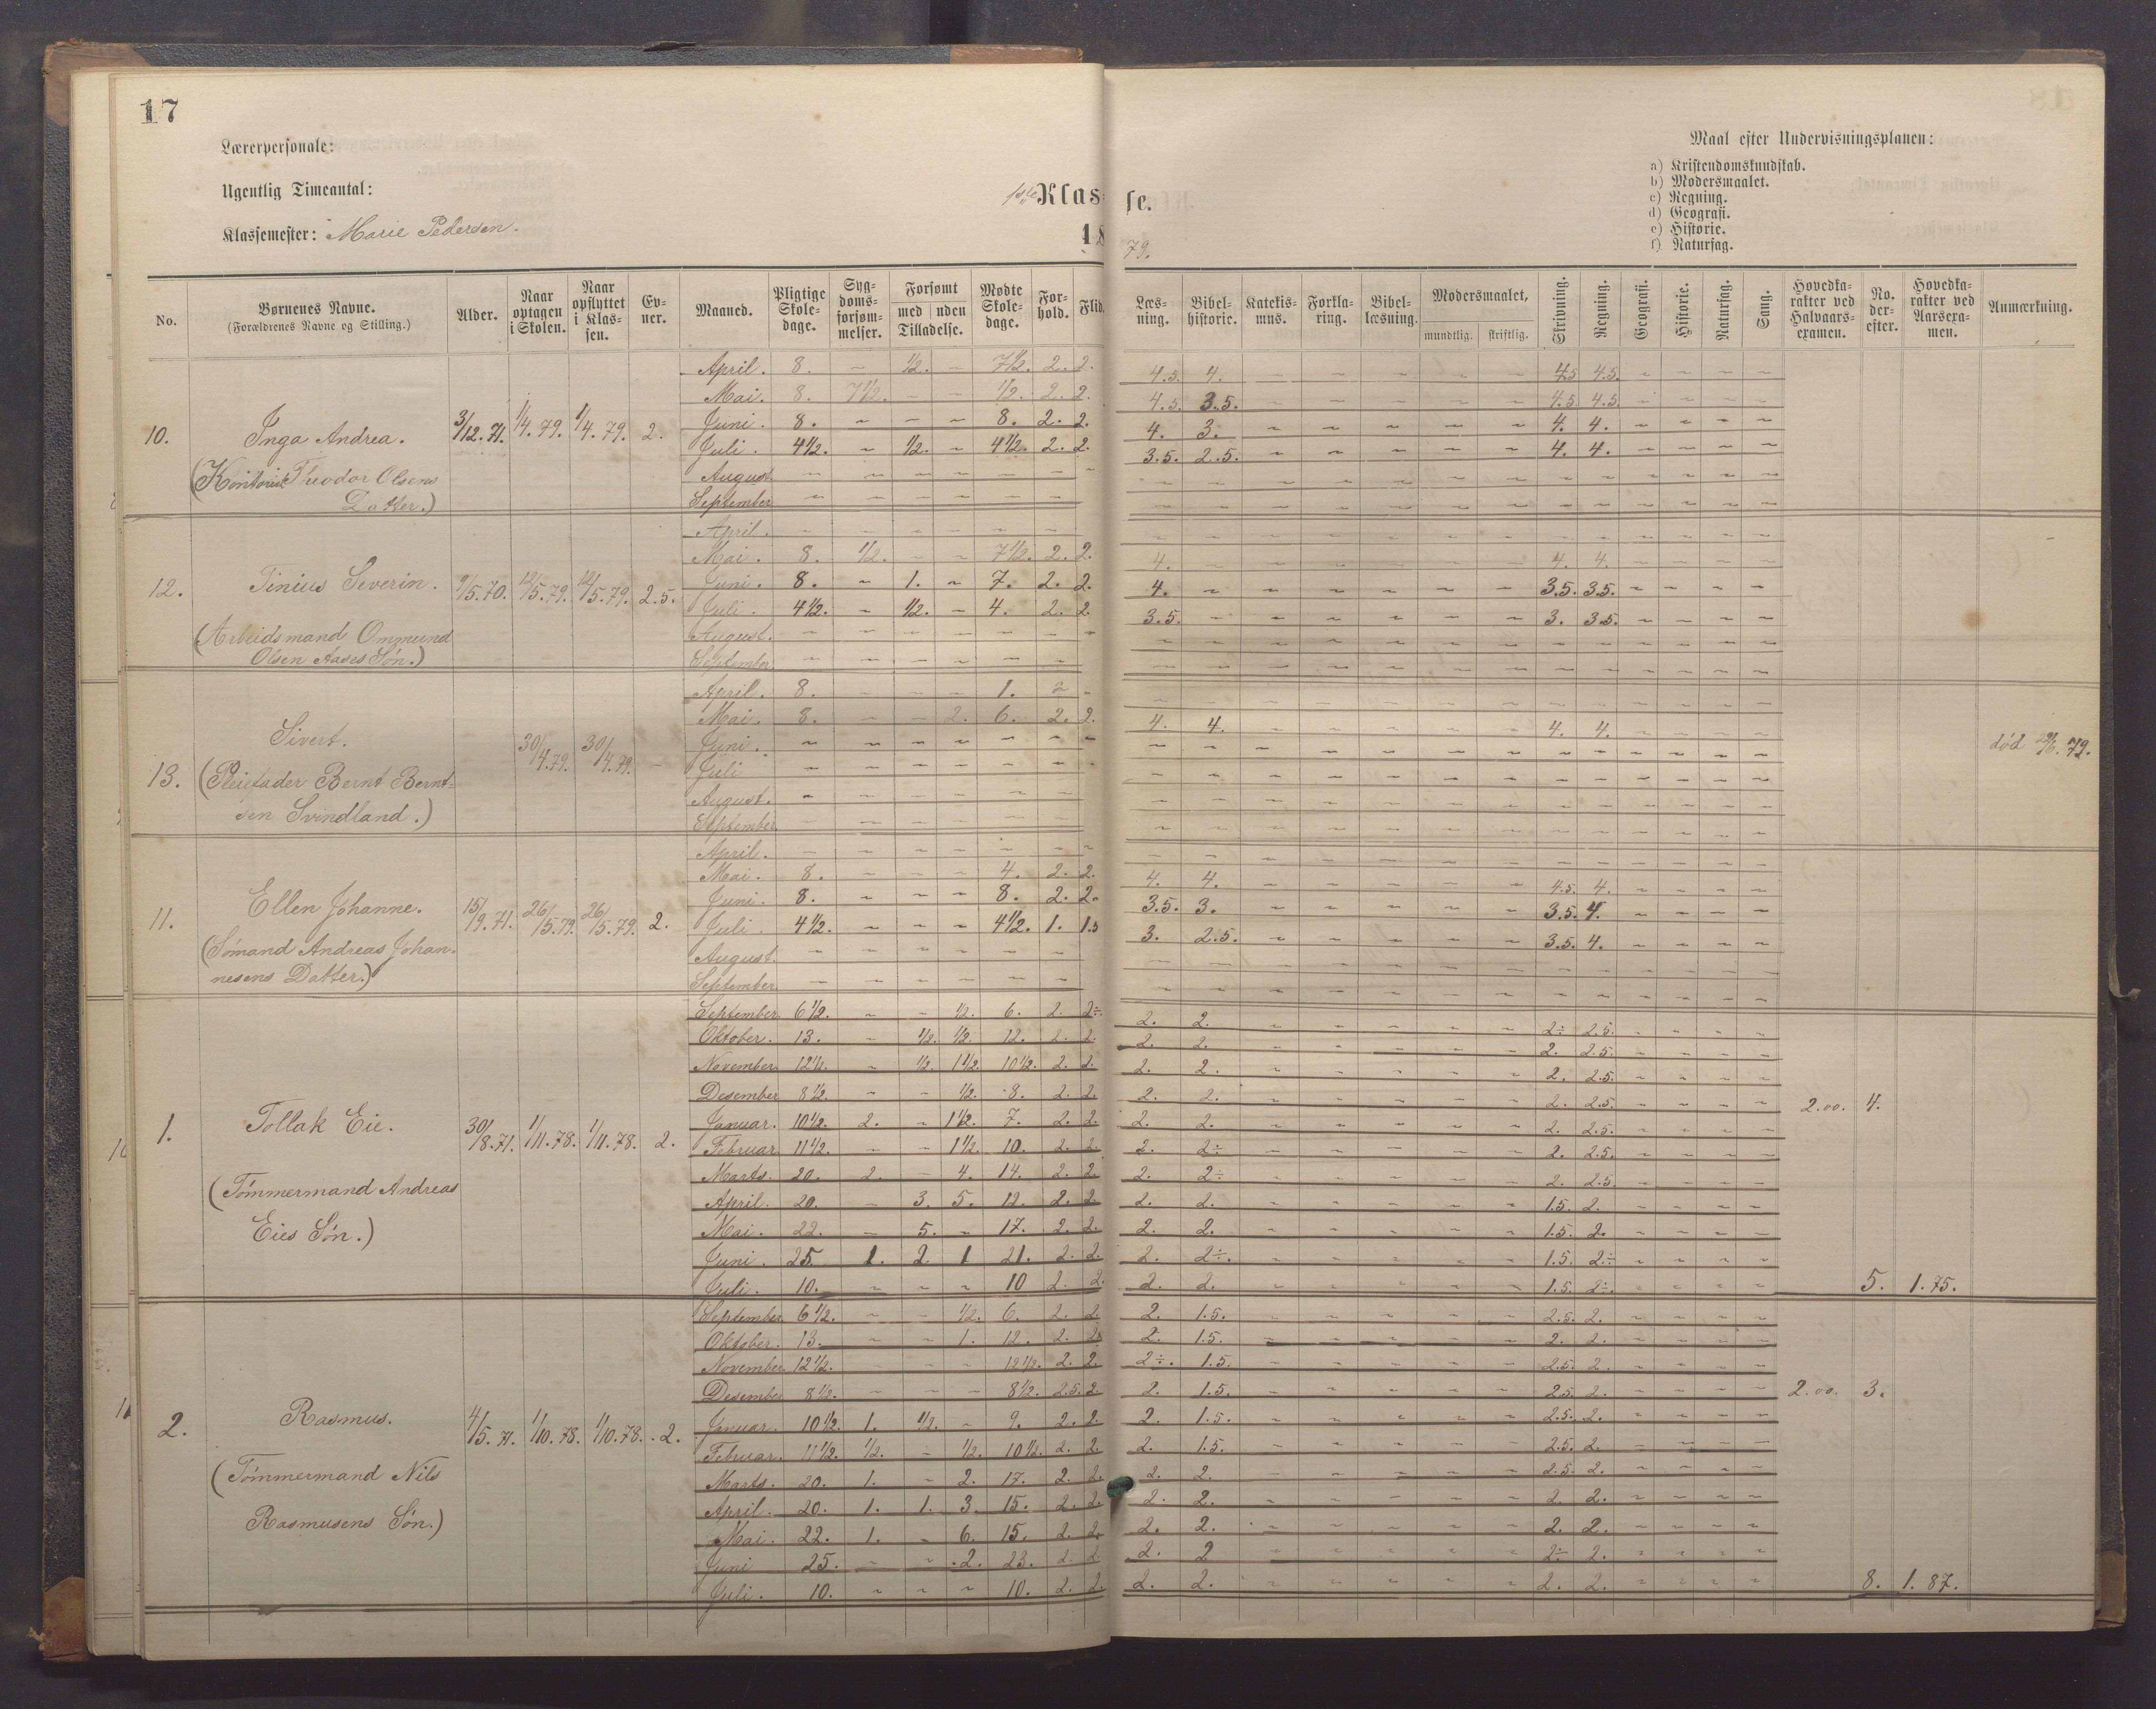 17
Lærerpersonale:
Ugentlig Timeantal:
Klassemester: Marie Pedersen.
1ste Klas-
se.
18
79.
Maal efter Undervisningsplanen:
a) Kristendomskundskab.
b) Modersmaalet.
c) Regning.
d) Geografi.
e) Historie.
f) Naturfag.
No. Børnenes Navne. (Forældrenes Navne og Stilling.) Alder. Naar optagen i Skolen. Naar opflyttet i Klassen. Evner. Maaned. Pligtige Skoledage. Sygdomsforsømmelser. Forsømt med uden Tilladelse. Mødte Skoledage. Forhold. Flid. Læsning. Bibelhistorie. Katekismus. Forklaring. Bibellæsning. Modersmaalet, mundtlig. skriftlig. Skrivning. Regning. Geografi. Historie. Naturfag. Sang. Hovedkarakter ved Halvaarsexamen. No. derefter. Hovedkarakter ved Aarsexamen. Anmærkning.
10. Inga Andrea. 3/12. 71. 1/4. 79. 1/4. 79. 2.
(Kontorist Theodor Olsens
Datter.)
April. 8. ~ 1/2. ~ 7 1/2. 2. 2. 4.5. 4. ~ ~ ~ ~ ~ 4.5 4.5. ~ ~ ~ ~
Mai. 8. 7 1/2. ~ ~ 1/2. 2. 2. 4.5. 3.5. ~ ~ ~ ~ ~ 4.5. 4.5. ~ ~ ~ ~
Juni. 8. ~ ~ ~ 8. 2. 2. 4. 3. ~ ~ ~ ~ ~ 4. 4. ~ ~ ~ ~
Juli. 4 1/2. ~ 1/2. ~ 4 1/2. 2. 2. 3.5. 2.5. ~ ~ ~ ~ ~ 4. 4. ~ ~ ~ ~
August. ~ ~ ~ ~ ~ ~ ~
September ~ ~ ~ ~ ~ ~
12. Tinius Severin. 9/5. 70. 12/5. 79. 12/5. 79. 2.5.
(Arbeidsmand Ommund
Olsen Aases Søn.)
April. ~ ~ ~ ~ ~ ~
Mai. 8. 1/2. ~ ~ 7 1/2. 2. 2. 4. 4. 4.
Juni. 8. ~ 1. ~ 7. 2. 2. 4. ~ ~ ~ ~ ~ ~ 3.5. 3.5. ~ ~ ~ ~
Juli. 4 1/2. ~ 1/2. ~ 4. 2. 2. 3.5. ~ ~ ~ ~ ~ ~ 3. 3.5. ~ ~ ~ ~
August. ~ ~ ~ ~ ~ ~ ~
September. ~ ~ ~ ~ ~ ~
13. Sivert. 30/4. 79. 30/4. 79. ~
Bernt Bernt-
sen Svindland.)
April. 8. ~ ~ ~ 1. 2 ~
Mai. 8. ~ ~ 2. 6. 2. 2. 4. 4. ~ ~ ~ ~ ~ 4. 4. ~ ~ ~ ~
Juni. ~ ~ ~ ~ ~ ~ ~ død /6. 79.
Juli ~ ~ ~ ~ ~ ~ ~
August. ~ ~ ~ ~ ~ ~
September ~ ~ ~ ~ ~ ~
11. Ellen Johanne. 15/9. 71. 26/5. 79. 26/5. 79. 2.
(Sømand Andreas Johan-
nesens Datter.)
April. ~ ~ ~ ~ ~ ~ ~
Mai. 8. ~ ~ ~ 4. 2. 2. 4. 4. ~ ~ ~ ~ ~ 4.5. 4. ~ ~ ~ ~
Juni. 8. ~ ~ ~ 8. 2. 2. 3.5. 3. ~ ~ ~ ~ ~ 3.5. 4. ~ ~ ~ ~
Juli. 4 1/2. ~ ~ ~ 4 1/2. 1. 1.5 3. 2.5. ~ ~ ~ ~ ~ 3.5. 4. ~ ~ ~ ~
August. ~ ~ ~ ~ ~ ~
September ~ ~ ~ ~ ~ ~
1. Tollak Eie. 30/8. 71. 1/11. 78. 1/11. 78. 2.
(Tømmermand Andreas
Eies Søn.)
September 6 1/2. ~ ~ 1/2. 6. 2. 2÷. 2. 2. ~ ~ ~ ~ ~ 2÷ 2.5. ~ ~ ~ ~
Oktober. 13. ~ 1/2. 1/2. 12. 2. 2. 2. 2. ~ ~ ~ ~ ~ 2. 2.5. ~ ~ ~ ~
November 12 1/2. ~ 1/2. 1 1/2. 10 1/2. 2. 2. 2. 2. ~ ~ ~ ~ ~ 2. 2.5. ~ ~ ~ ~
Desember 8 1/2. ~ ~ 1/2. 8. 2. 2. 2. 2. ~ ~ ~ ~ ~ 2. 2.5. ~ ~ ~ ~ 2.00. 4.
Januar. 10 1/2. 2. ~ 1 1/2. 7. 2. 2. 2. 2. ~ ~ ~ ~ ~ 2. 2.5. ~ ~ ~ ~
Februar 11 1/2. ~ ~ 1 1/2. 10. 2. 2. 2. 2÷ ~ ~ ~ ~ ~ 2. 2.5. ~ ~ ~ ~
Marts. 20. 2. ~ 4. 14. 2. 2. 2. 2÷ ~ ~ ~ ~ ~ 2. 2.5. ~ ~ ~ ~
April. 20. ~ 3. 5. 12. 2. 2. 2. 2. ~ ~ ~ ~ ~ 1.5. 2. ~ ~ ~ ~
Mai. 22. ~ 5. ~ 17. 2. 2. 2. 2. ~ ~ ~ ~ ~ 1.5. 2. ~ ~ ~ ~
Juni. 25. 1. 2. 1 21. 2. 2. 2. 2÷. ~ ~ ~ ~ ~ 1.5. 2÷ ~ ~ ~ ~
Juli. 10. ~ ~ ~ 10 2. 2. 2. 2. ~ ~ ~ ~ ~ 1.5. 2÷. ~ ~ ~ ~ 5. 1.75.
2. Rasmus. 4/5. 71. 1/10. 78. 1/10. 78. 2.
(Tømmermand Nils
Rasmusens Søn.)
September 6 1/2. ~ ~ 1/2. 6. 2. 2. 2. 1.5. ~ ~ ~ ~ ~ 2.5. 2. ~ ~ ~ ~
Oktober. 13. ~ ~ 1. 12. 2. 2. 2. 1.5. ~ ~ ~ ~ ~ 2. 2. ~ ~ ~ ~
November 12 1/2. ~ ~ ~ 12 1/2. 2. 2. 2÷. 1.5. ~ ~ ~ ~ ~ 2.5. 2. ~ ~ ~ ~
Desember 8 1/2. ~ ~ ~ 8 1/2. 2.5. 2. 2. 1.5. ~ ~ ~ ~ ~ 2.5. 2. ~ ~ ~ ~ 2.00. 3.
Januar. 10 1/2. 1. 1/2. ~ 9. 2. 2. 2. 1.5. ~ ~ ~ ~ ~ 2.5. 2. ~ ~ ~ ~
Februar. 11 1/2. 1/2. ~ 1/2. 10 1/2. 2. 2. 2. 1.5. ~ ~ ~ ~ ~ 2.5. 2. ~ ~ ~ ~
Marts. 20. 1. ~ 2. 17. 2. 2. 2. 2. ~ ~ ~ ~ ~ 2.5. 2. ~ ~ ~ ~
April. 20. 1. 1. 3. 15. 2. 2. 2. 2. ~ ~ ~ ~ ~ 2. 2. ~ ~ ~ ~
Mai. 22. 1. ~ 6. 15. 2. 2. 2. 2. ~ ~ ~ ~ ~ 2. 2. ~ ~ ~ ~
Juni 25. ~ ~ 2. 23. 2. 2. 2. 2 ~ ~ ~ ~ ~ 2÷ 2. ~ ~ ~ ~
Juli. 10. ~ ~ ~ 10. 2. 2. 2. 2. ~ ~ ~ ~ ~ 2. 2. ~ ~ ~ ~ 8. 1.87.